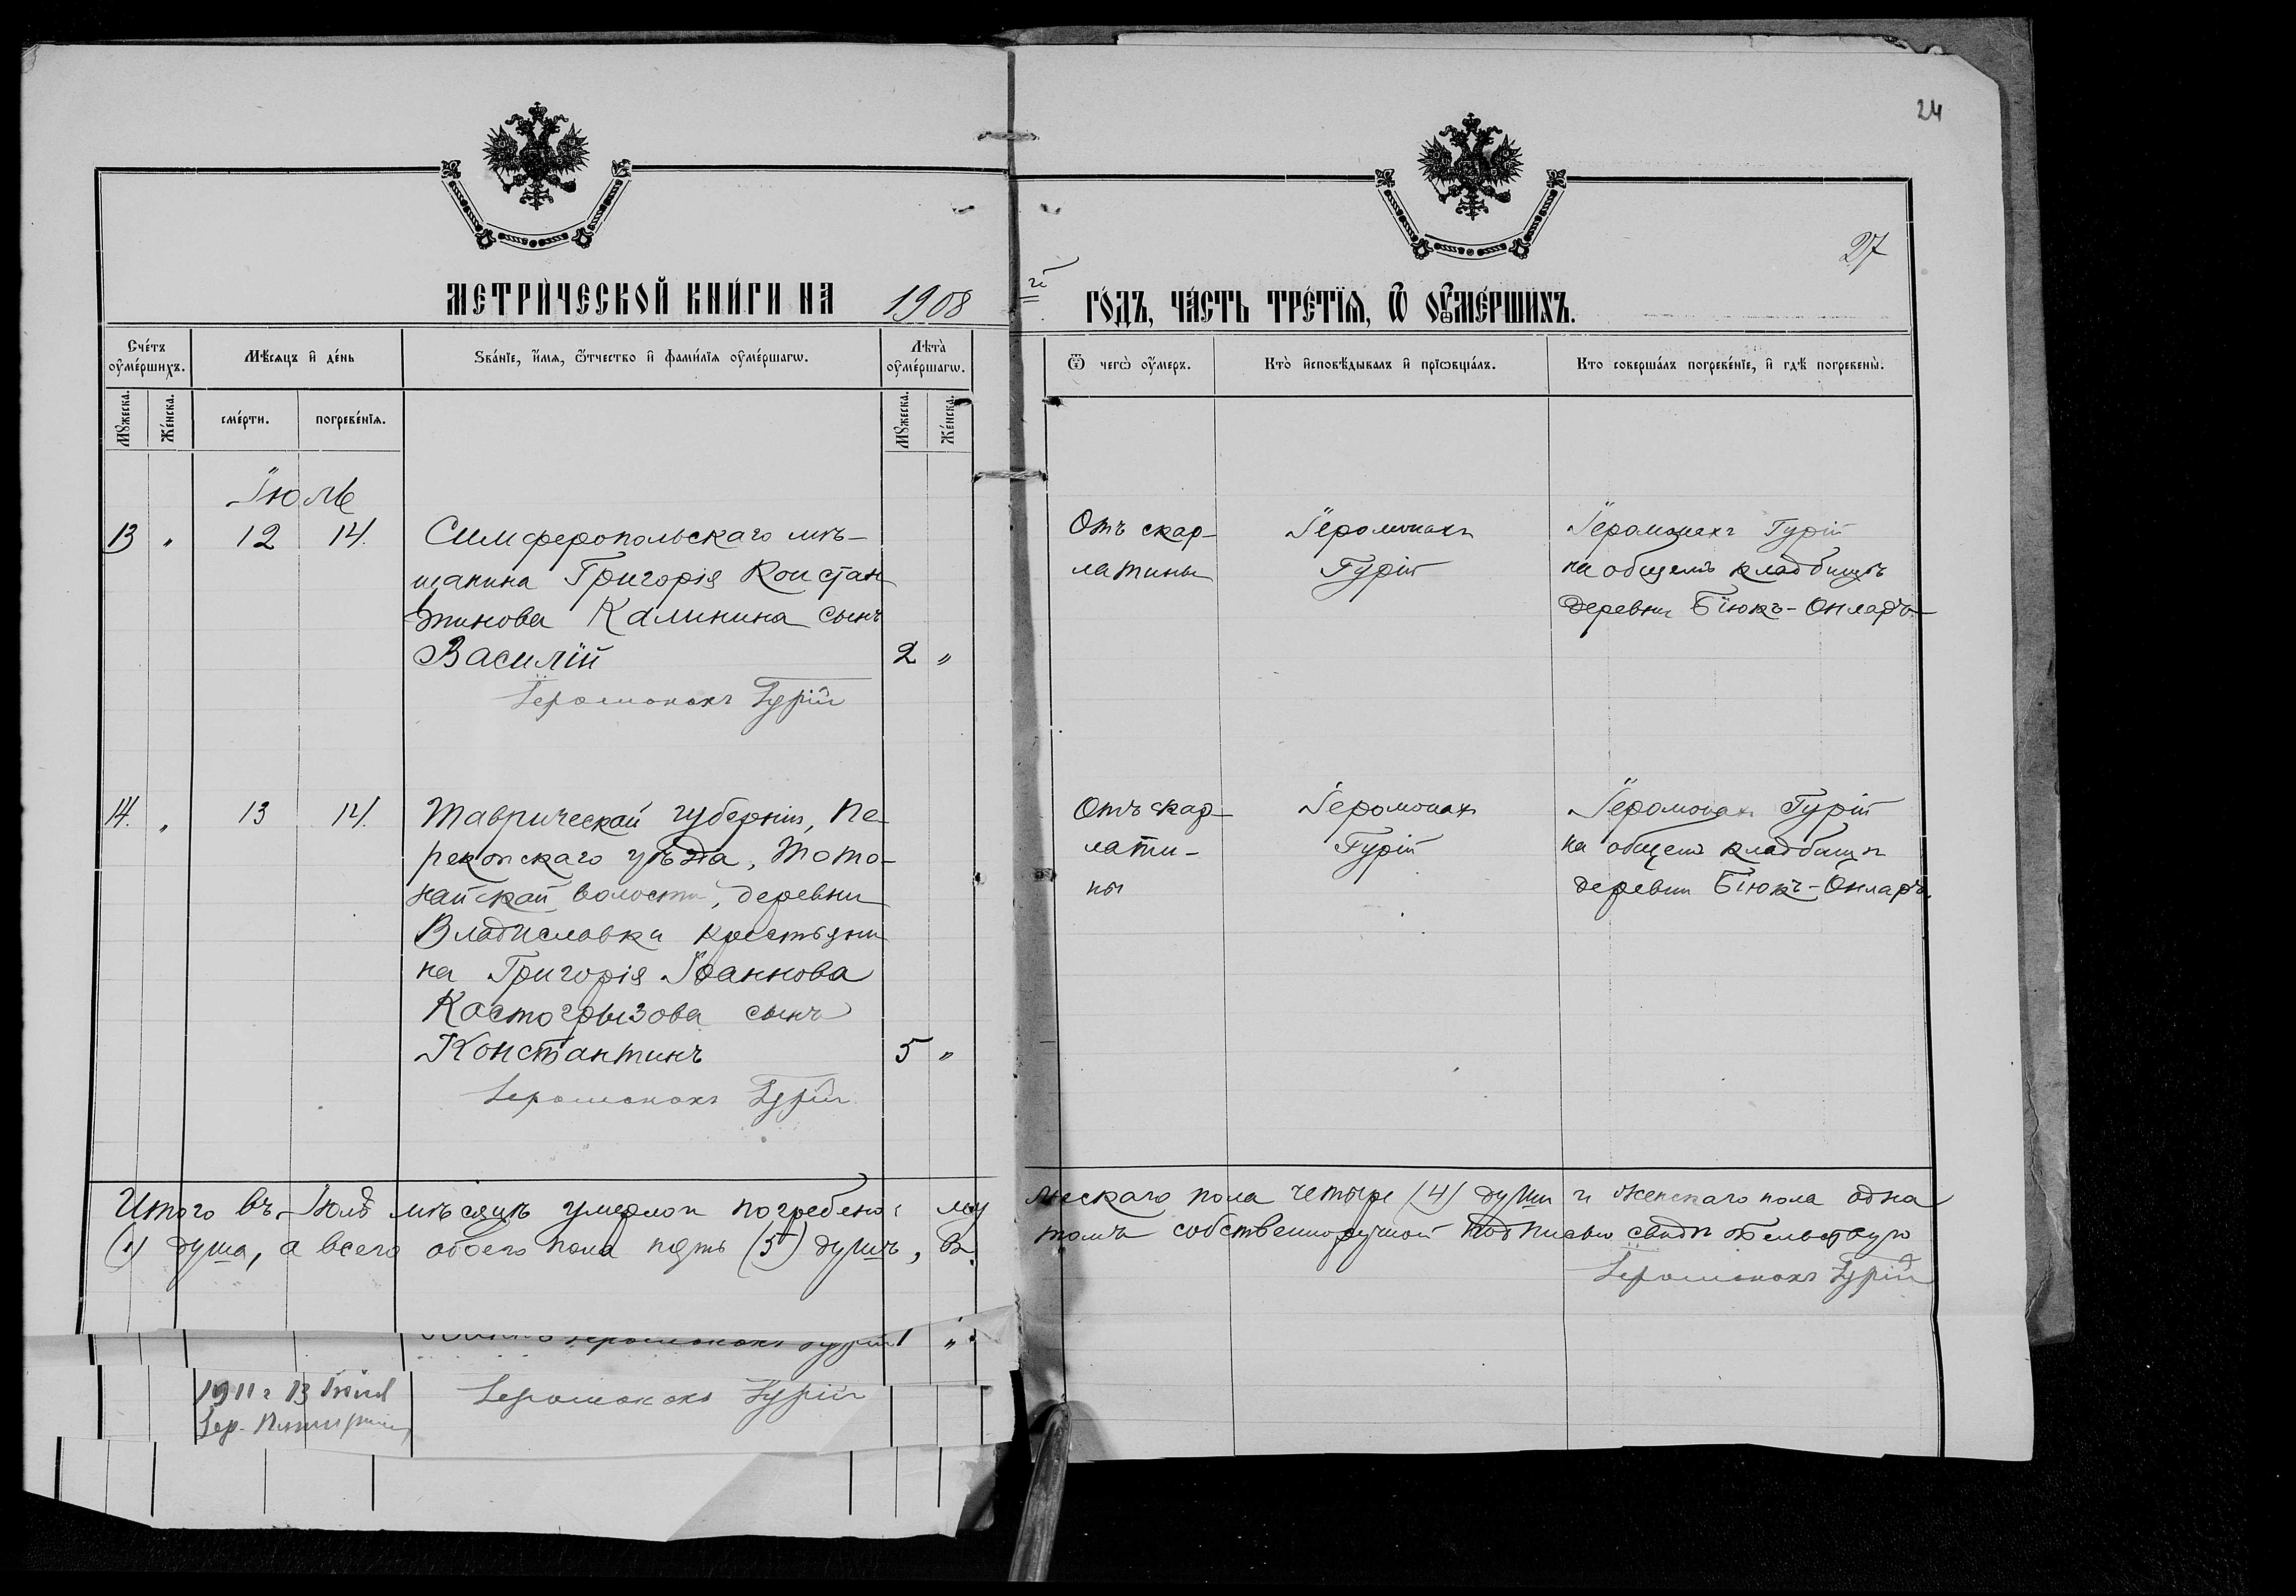 24
27
МЕТРИ́ЧЕСКОЙ КНИ́ГИ НА 1908 й
ГО́ДЪ, ЧА́СТЬ ТРЕ́ТЇѦ, Ѿ ОУ҆МЕ́РШИХЪ.
Сче́тъ оу҆ме́ршихъ.
Мѣ́сѧцъ и҆ де́нь
Ѕва́нїе, и҆́мѧ, ѻ҆́тчество и҆ фами́лїѧ оу҆ме́ршагѡ.
Лѣ́та оу҆ме́ршагѡ.
Ѿ чегѡ̀ оу҆́меръ.
Кто̀ и҆сповѣ́дывалъ и҆ прїѡбща́лъ.
Кто соверша́лъ погребе́нїе, и҆ гдѣ̀ погребены̀.
Мꙋжеска.
Же́нска.
сме́рти.
погребе́нїѧ.
Мꙋжеска.
Же́нска.
Іюль
13 " 12 14. Симферопольскаго мѣ-
щанина Григорія Констан
тинова Калинина сынъ
Василій 2 "
Іеромонахъ Гурій
Отъ скар-
латины
Іеромонахъ
Гурій
Іеромонахъ Гурій
на общемъ кладбищѣ
деревни Біюкъ-Онларъ
14. " 13 14. Таврической губерніи, Пе-
рекопскаго уѣзда, Тото-
найской волости, деревни
Владиславки крестьяни
на Григорія Іоаннова
Костогрызова сынъ
Константинъ 5 "
Іеромонахъ Гурій
Отъ скар-
лати-
ны
Іеромонахъ
Гурій
Іеромонахъ Гурій
на общемъ кладбищѣ
деревни Біюкъ-Онларъ.
Итого въ Іюлѣ мѣсяцѣ умерло и погребено: му
жескаго пола четыре (4) души и женскаго пола одна
(1) душа, а всего обоего пола пять (5) душъ, въ
томъ собственноручной подписью свидѣтельствую
Іеромонахъ Гурій
Іеромонахъ Гурій 1 "
1911 г 13 Іюля
Іер.
Іеромонахъ Гурій